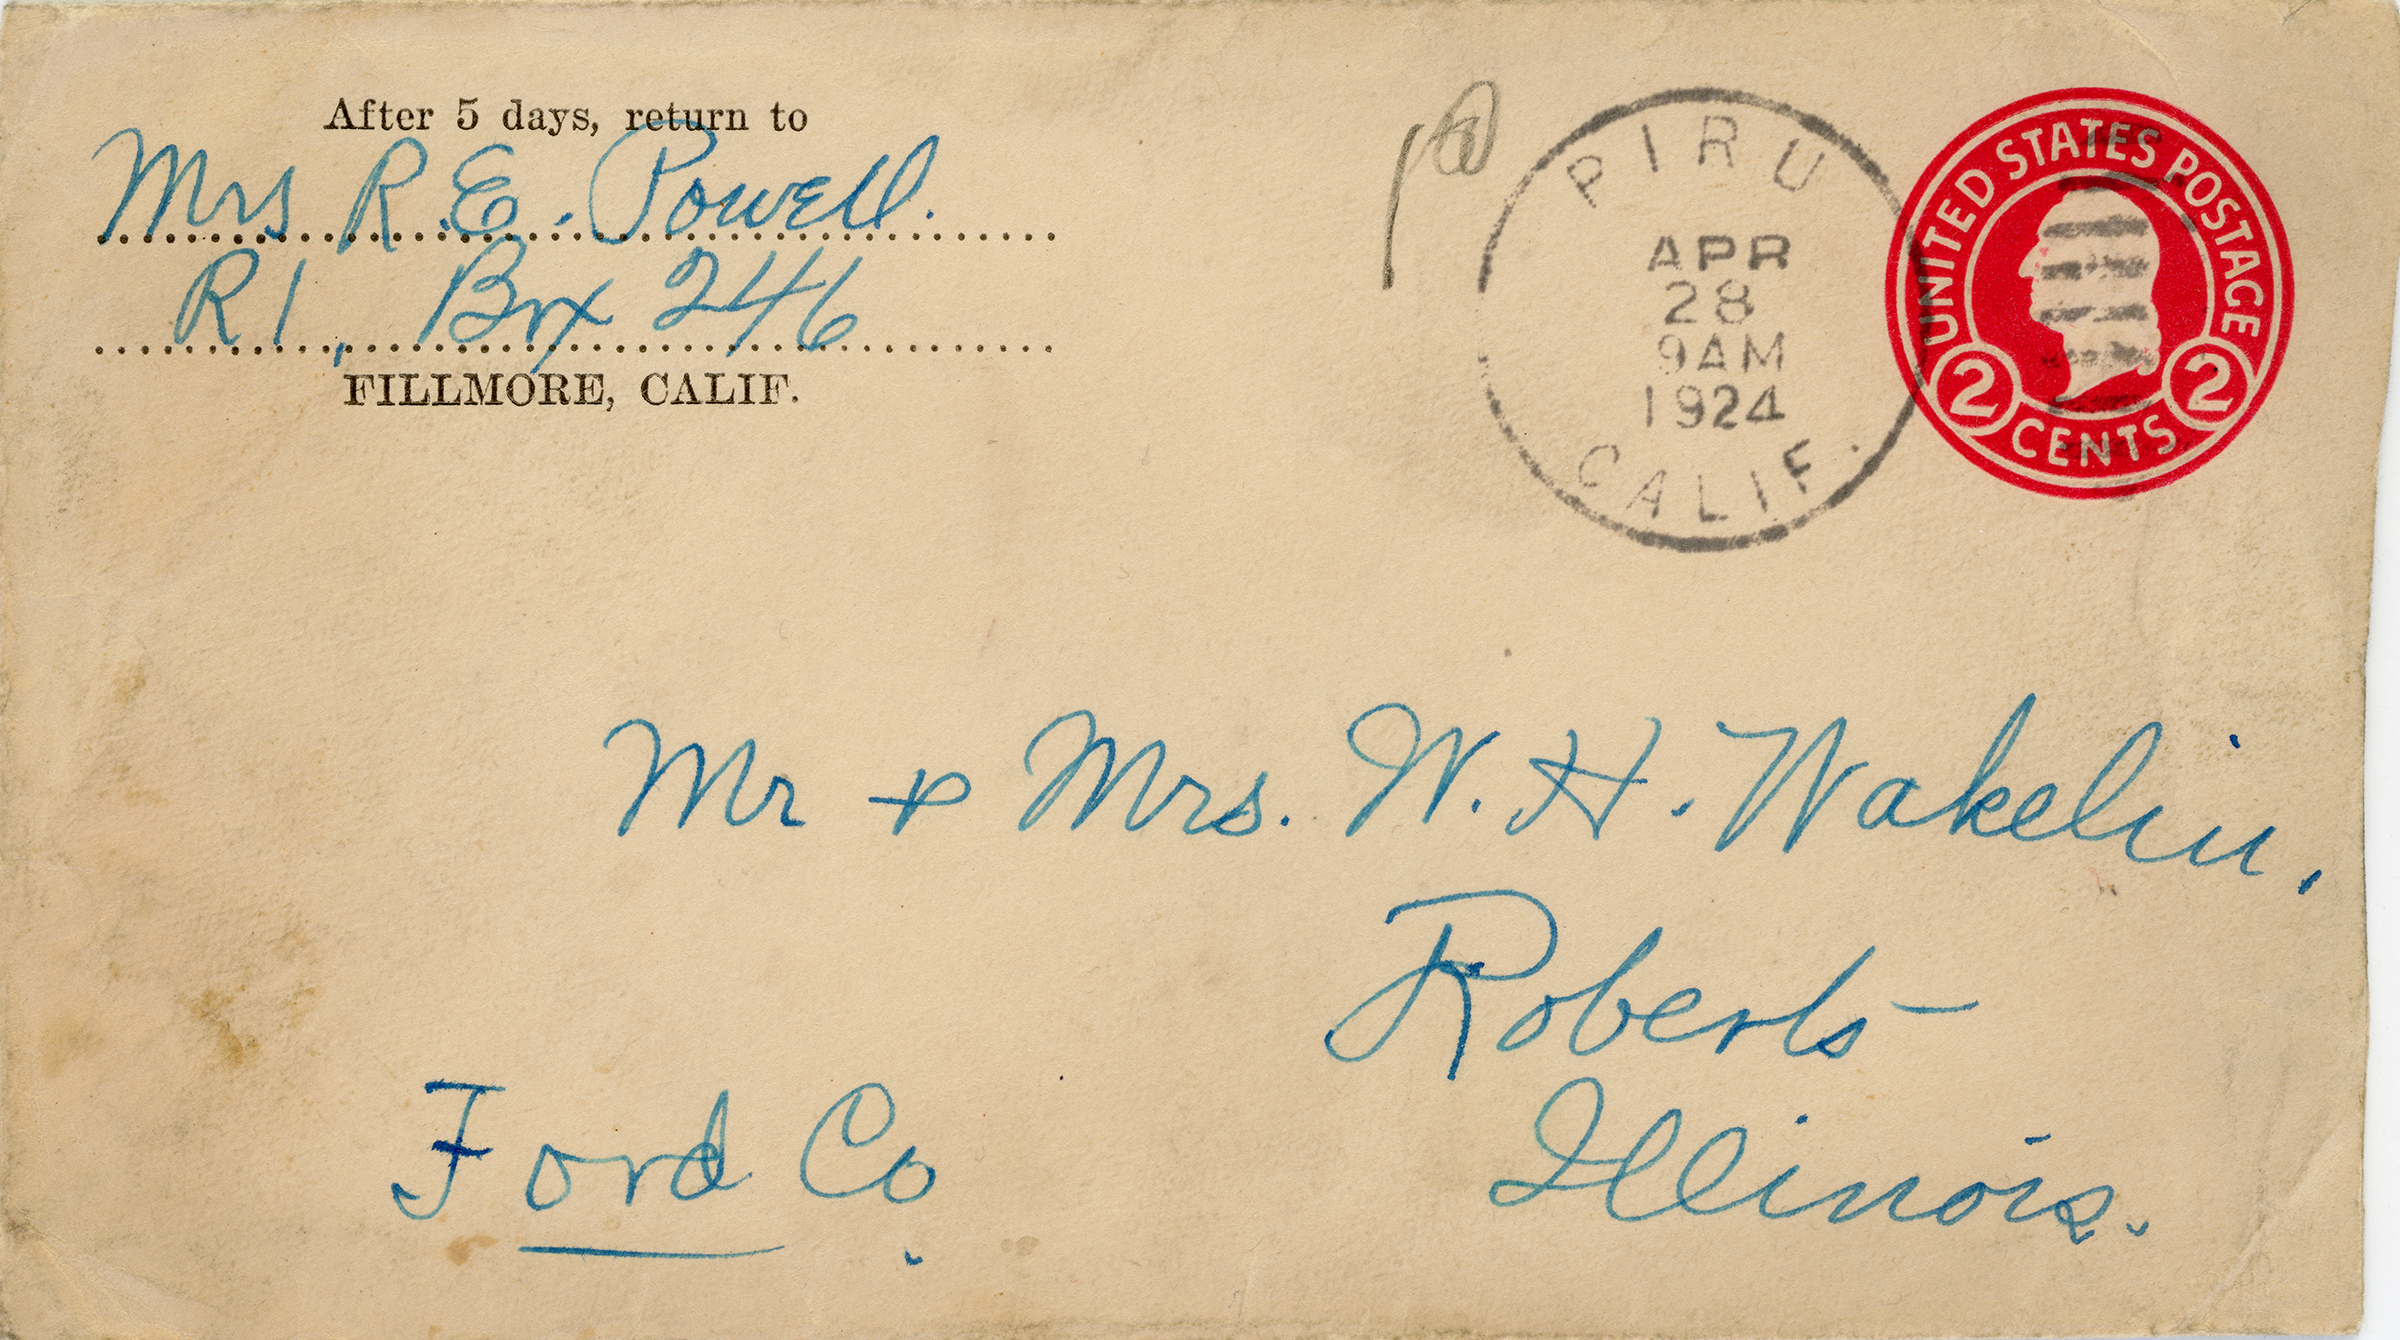 After 5 days, return to
Mrs R.E. Powell.
R1, Box 246
FILLMORE, CALIF.
PIRU
APR
28
9AM
1924
CALIF.
UNITED STATES POSTAGE
2 CENTS 2
Mr & Mrs. W. H. Wakelin,
Roberts—
Illinois.
Ford Co.